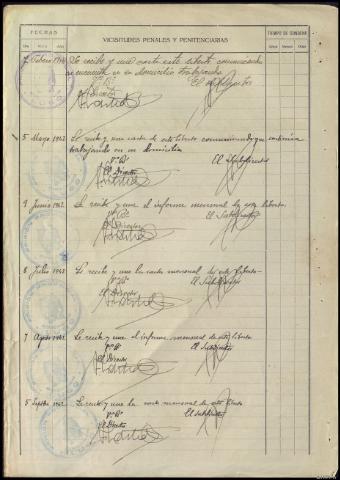 FECHAS
VICISITUDES PENALES Y PENITENCIARIAS
TIEMPO DE CONDENA
Se recibe y une carta este liberto comunicando
se encuentra en su domicilio trabajando
El Director
5 Mayo 1942 Se recibe y une carta de este liberto comunicando que continúa
trabajando en su domicilio
Vº Bº El Subdirector
El Director
9 Junio 1942. Se recibe y une el informe mensual de este liberto.
Vº Bº El Subdirector
El Director
8 Julio 1942 Se recibe y une la carta mensual de este liberto
Vº Bº El Subdirector
El Director
7 Agosto 1942. Se recibe y une el informe mensual de este liberto
Vº Bº El Subdirector
El Director
5 Septbre 1942 Se recibe y une la carta mensual de este liberto
Vº Bº El Subdirector
El Director